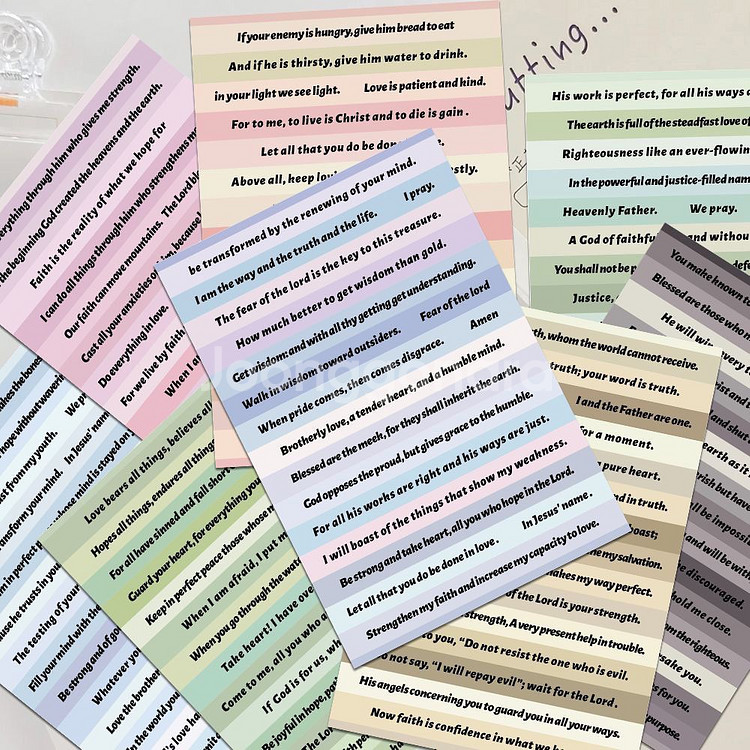 If your enemy is hungry, give him bread to eat
And if he is thirsty, give him water to drink.
in your light we see light. Love is patient and kind.
For to me, to live is Christ and to die is gain .
Let all that you do be done
Above all, keep
utting...
His work is perfect, for all his ways
The earth is full of the steadfast love of
Righteousness like an ever-flowin
In the powerful and justice-filled nam
Heavenly Father. We pray.
A God of faithfu and withou
You shall not be p
Justice,
everything through him who gives me strength.
the beginning God created the heavens and the earth.
Faith is the reality of what we hope for
I can do all things through him who strengthens m
Our faith can move mountains. The Lord bl
Cast all your anxieties o because
Do everything in love.
For we live by faith
When I a
be transformed by the renewing of your mind.
I am the way and the truth and the life. I pray.
The fear of the lord is the key to this treasure.
How much better to get wisdom than gold.
Get wisdom: and with all thy getting get understanding.
Walk in wisdom toward outsiders. Fear of the lord
When pride comes, then comes disgrace. Amen
Brotherly love, a tender heart, and a humble mind.
Blessed are the meek, for they shall inherit the earth.
God opposes the proud, but gives grace to the humble.
For all his works are right and his ways are just.
I will boast of the things that show my weakness.
Be strong and take heart, all you who hope in the Lord.
Let all that you do be done in love. In Jesus' name.
Strengthen my faith and increase my capacity to love.
You make known
Blessed are those who
He will wi
every t
rist and
be impossib
and will be with
e discouraged.
hold me close.
m the righteous.
sake you.
s for you.
purpose.
th, whom the world cannot receive.
truth; your word is truth.
I and the Father are one.
for a moment.
pure heart.
nd in truth.
oast;
my salvation.
makes my way perfect.
of the Lord is your strength.
strength, A very present help in trouble.
to you, “Do not resist the one who is evil.
o not say, “I will repay evil”; wait for the Lord.
His angels concerning you to guard you in all your ways.
Now faith is confidence in what we h
Love bears all things, believes all
Hopes all things, endures all things
For all have sinned and fall short
Guard your heart, for everything yo
Keep in perfect peace those whose
When I am afraid, I put m
When you go through the wa
Take heart! I have ove
Come to me, all you who a
If God is for us, w
Be joyful in hope, pa
The Lor
makes the bones
hope without waveri
We p
st from my youth.
ransform your mind. In Jesus' nam
m in perfect whose mind is stayed on
use he trusts in you
The testing of your
Fill your mind with the
Be strong and of go
Whatever yo
Love the brothe
in the world you
's love ha